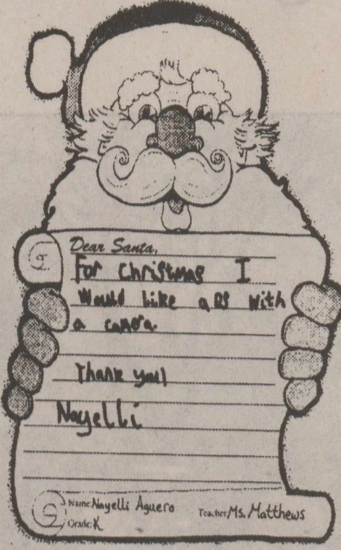 Dear Santa,
For Christmas I
Would like a DS with
a camera
Thank you!
Nayelli
Name: Nayelli Aguero Teacher: Ms. Matthews
Grade: K